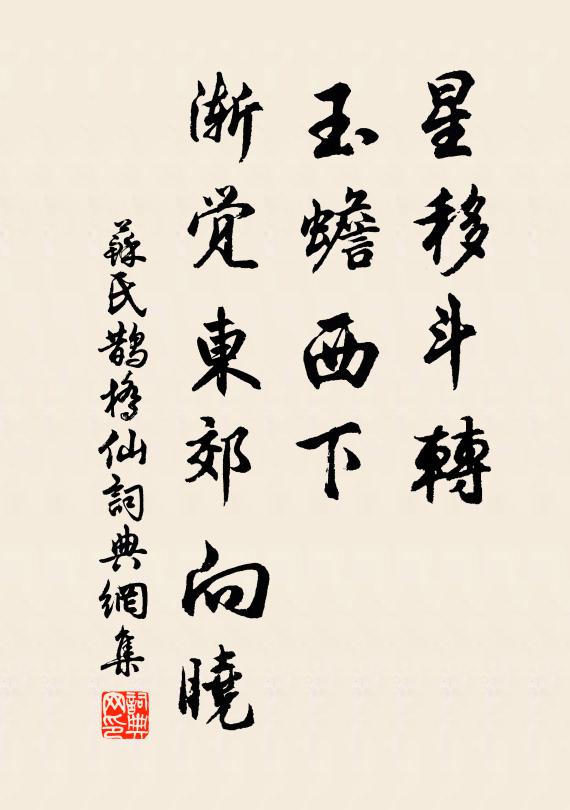 星移斗轉
玉蟾西下
漸覺東郊向曉
蘇氏鵲橋仙詞典網集
詞典网印